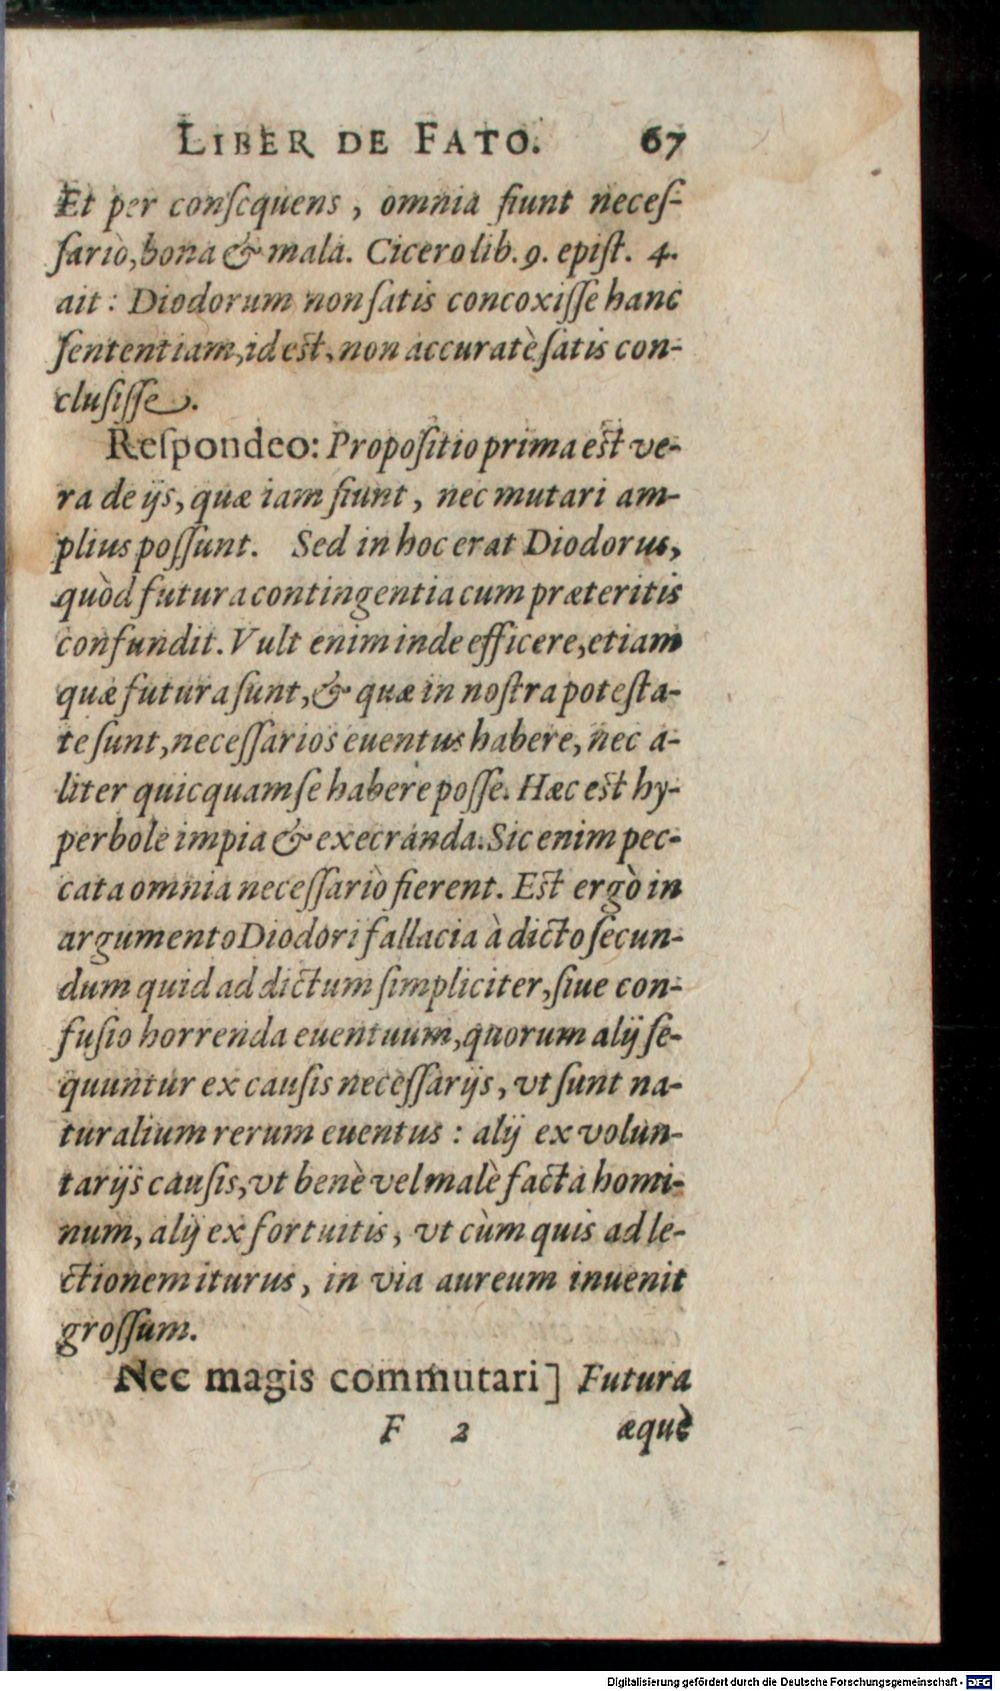 LIBER DE FATO. 67
Et per conſequens, omnia fiunt neceſ-
ſariò, bona & mala. Cicero lib. 9. epiſt. 4.
ait: Diodorum non ſatis concoxiſſe hanc
ſententiam, id est, non accuratè ſatis con-
cluſiſſe.
Reſpondeo: Propoſitio prima est ve-
ra de ijs, quæ iam fiunt, nec mutari am-
plius poſſunt. Sed in hoc erat Diodorus,
quòd futura contingentia cum præteritis
confundit. Vult enim inde efficere, etiam
quæ futura ſunt, & quæ in noſtra poteſta-
te ſunt, neceſſarios euentus habere, nec a-
liter quicquam ſe habere poſſe. Hæc est hy-
perbole impia & execranda. Sic enim pec-
cata omnia neceſſariò fierent. Est ergò in
argumento Diodori fallacia à dicto ſecun-
dum quid ad dictum ſimpliciter, ſiue con-
fuſio horrenda euentuum, quorum alij ſe-
quuntur ex cauſis neceſſarijs, vt ſunt na-
turalium rerum euentus: alij ex volun-
tarijs cauſis, vt benè vel malè facta homi-
num, alij ex fortuitis, vt cùm quis ad le-
ctionem iturus, in via aureum inuenit
groſſum.
Nec magis commutari] Futura
F 2 æquè
Digitalisierung gefördert durch die Deutsche Forschungsgemeinschaft - DFG